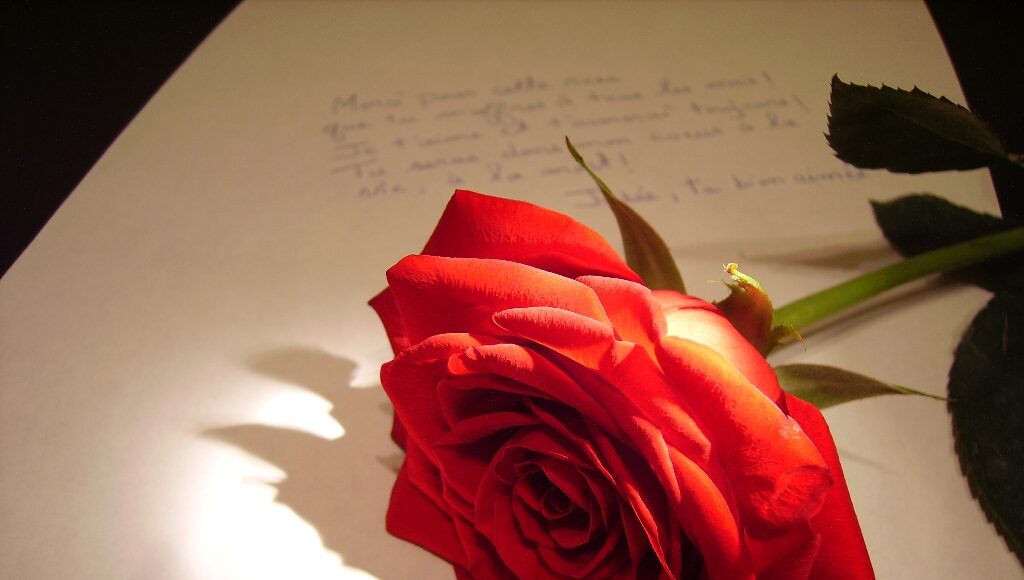 Merci pour cette rose
que tu m'offres à tous les mois!
Je t'aime et t'aimerai toujours!
Tu seras dans mon coeur à la
vie, à la mort!
ta bien aimée